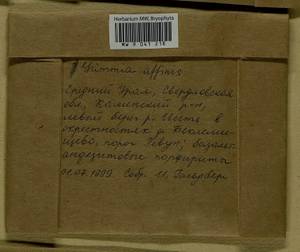 Herbarium MW, Bryophyta
MW 9 041 216
Grimmia affinis
Средний Урал, Свердловская
обл., Каменский р-н,
левый берег р. Исеть в
окрестностях д.
порог Ревун; базальт
андезитовые порфириты
01.07.1999 Собр. И. Гольдберг